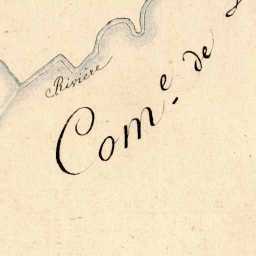 Rivière
Com.e de